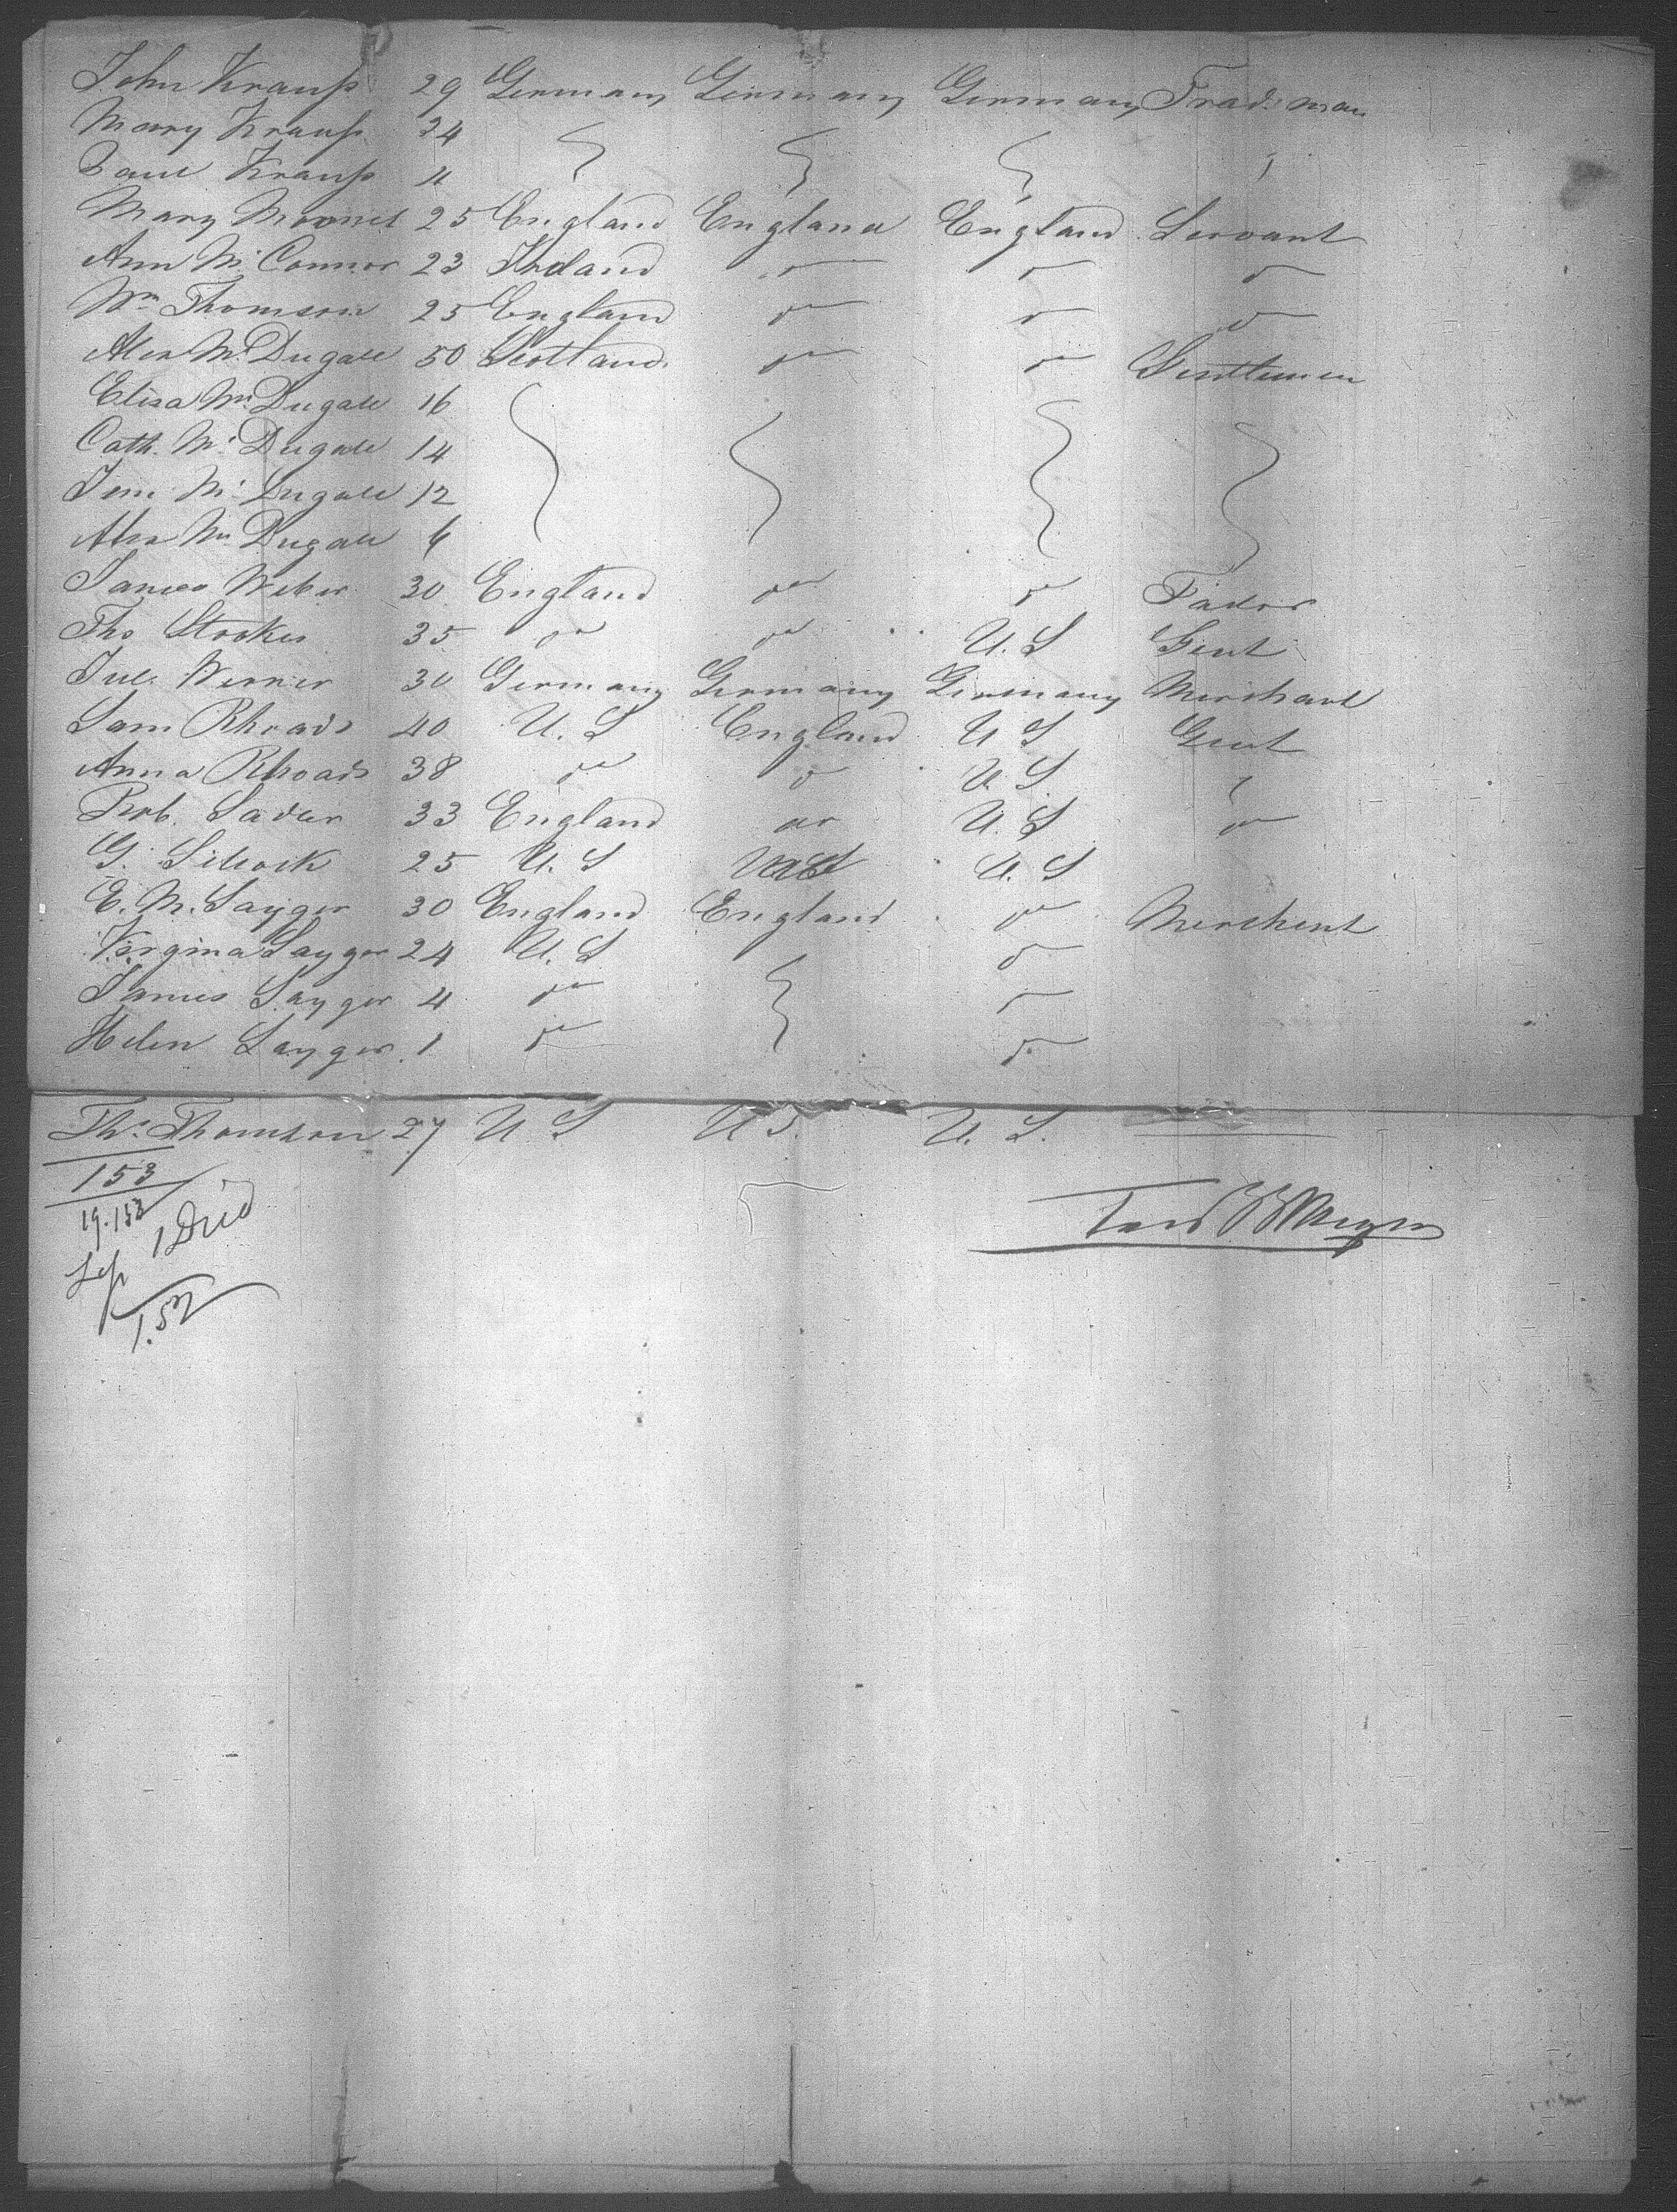 John Krauß 29 Germany Germany Germany Tradsman
Mary Krauß 24
Paul Krauß 11
Mary 25 England England England Servant
Ann McConnor 23 Irland do do do
Wm Thomson 25 England do do do
Alex McDugall 50 Scotland do do Gentlemen
Elisa McDugall 16
Cath. McDugall 14
Jem McDugall 12
Alex McDugall 6
James Weber 30 England do do Tador
Tho Stookes 35 do do U.S Gent
Jul. Werner 30 Germany Germany Germany Merchant
Sam Rhoads 40 U.S England U S Gent
Anna Rhoads 38 do do U.S.
Rob. Sadler 33 England do U.S do
G. Silcock 25 U.S U S U.S
E. M. Sayger 30 England England do Merchent
Virginia Sayger 24 U.S do
James Sayger 4 do do
Helen Sayger 1 do do
Ths Thomson 27 U S U S. U. S.
153
19.153
1 Died
152